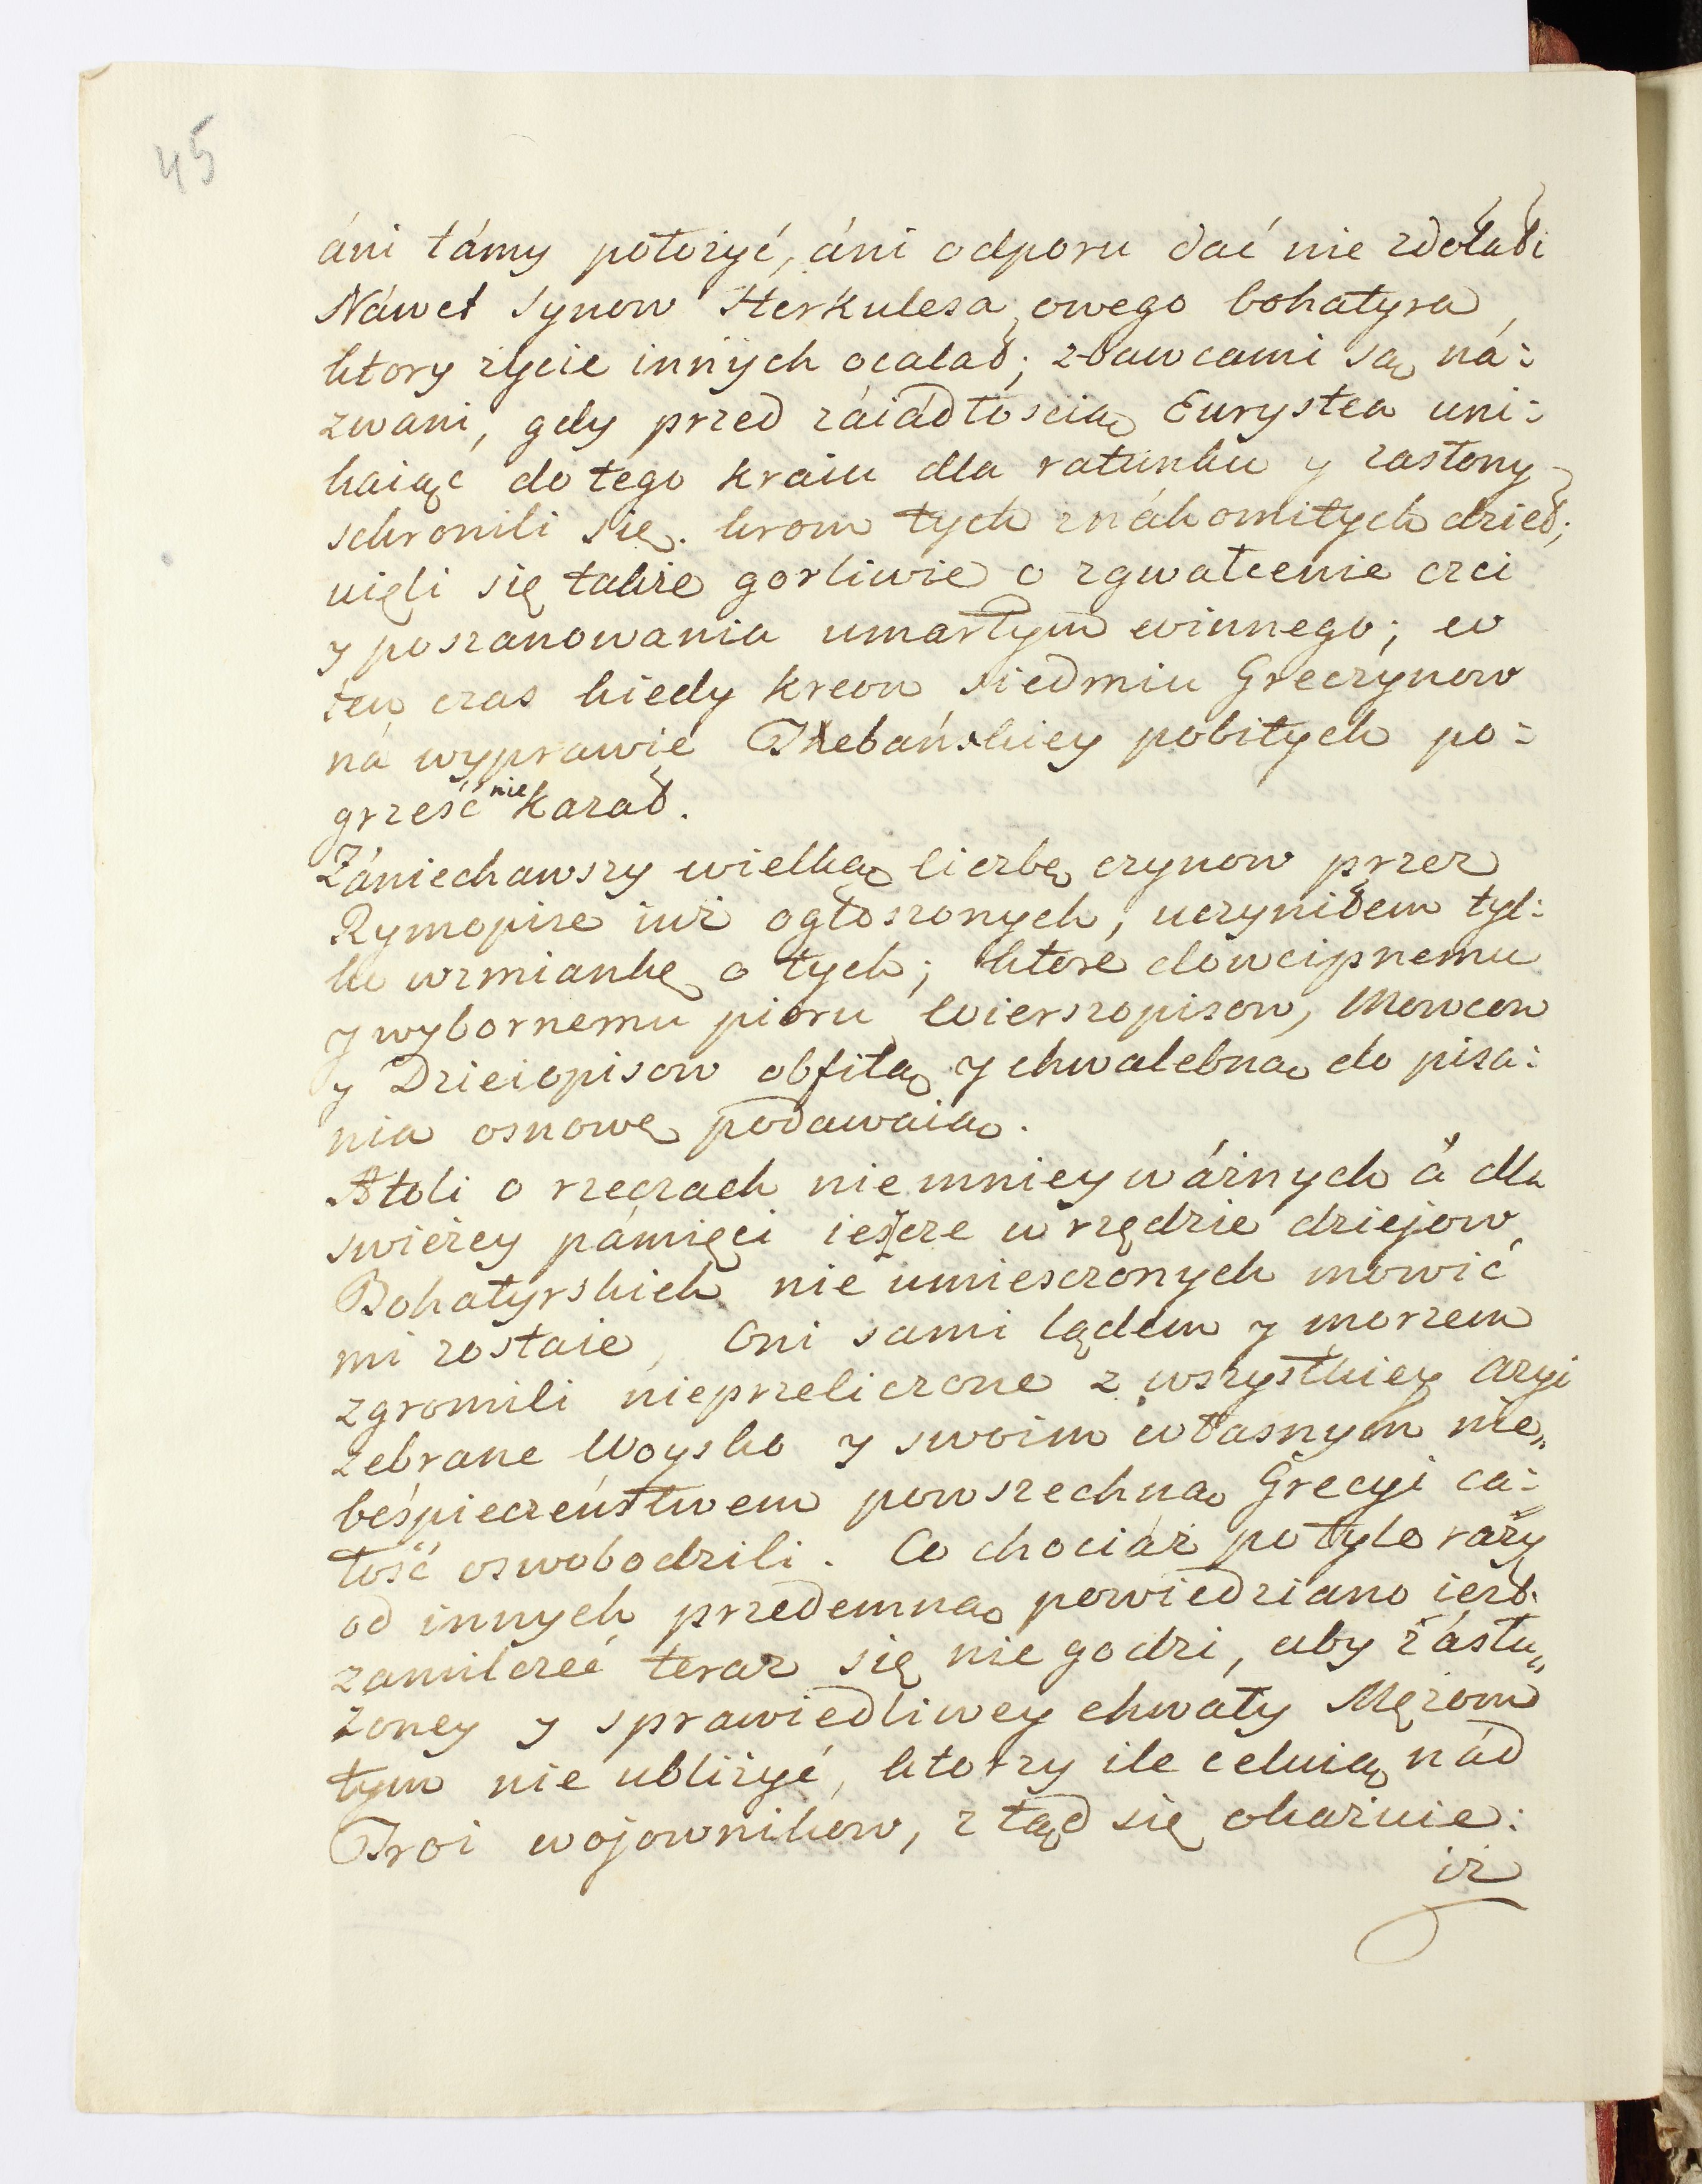 45
áni támy położyć, áni odporu dać nie zdołali
Náwet Synow Herkulesa, owego bohatyra,
ktory życie innych ocalał; zbawcami są ná:
zwani, gdy przed záiádłoscią Eurystea uni:
kaiąc do tego kraiu dla ratunku y zasłony
schronili się. krom tych znákomitych dzieł;
uięli się także gorliwie o zgwałcenie czci
y poszanowania umarłym winnego; w
ten czas kiedy Kreon siedmiu Greczynow
ná wyprawie Thebańskiey pobitych po:
grześć nie kazał.
Zániechawszy wielką liczbę czynow przez
Rymopise iuż ogłoszonych, uczyniłem tyl:
ko wzmiankę o tych; ktore dowcipnemu
y wybornemu pioru Wierszopisow, Mowcow
y Dzieiopisow obfitą y chwalebną do pisa:
nia osnowę podawaią.
Atoli o rzeczach niemniey wáżnych á dla
swieżey pámięci ieszcze w rzędzie dziejow
Bohatyrskich nie umiesczonych mowić
mi zostaie, Oni sami lądem y morzem
zgromili nieprzeliczone z wszystkiey Azyi
zebrane Woysko y swoim własnym nie„
beśpieczeństwem powszechną Grecyi ca:
łość oswobodzili. Co chociaż po tylo razy
od innych przedemną powiedziano iest.
zamilczeć teraz się nie godzi, aby zásłu„
żoney y sprawiedliwey chwały Mężom
tym nie ubliżyć, ktorzy ile celuią nád
Troi wojownikow, z tąd się okazuie:
iż